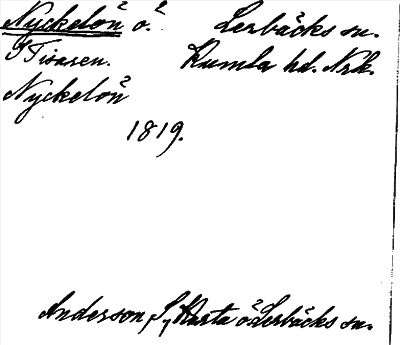 Nyckelön² ö.² Lerbäcks sn.
I Tisaren. Kumla hd. Nrk.
Nyckelön²
1819.
Anderson, S, Karta ö. Lerbäcks sn.